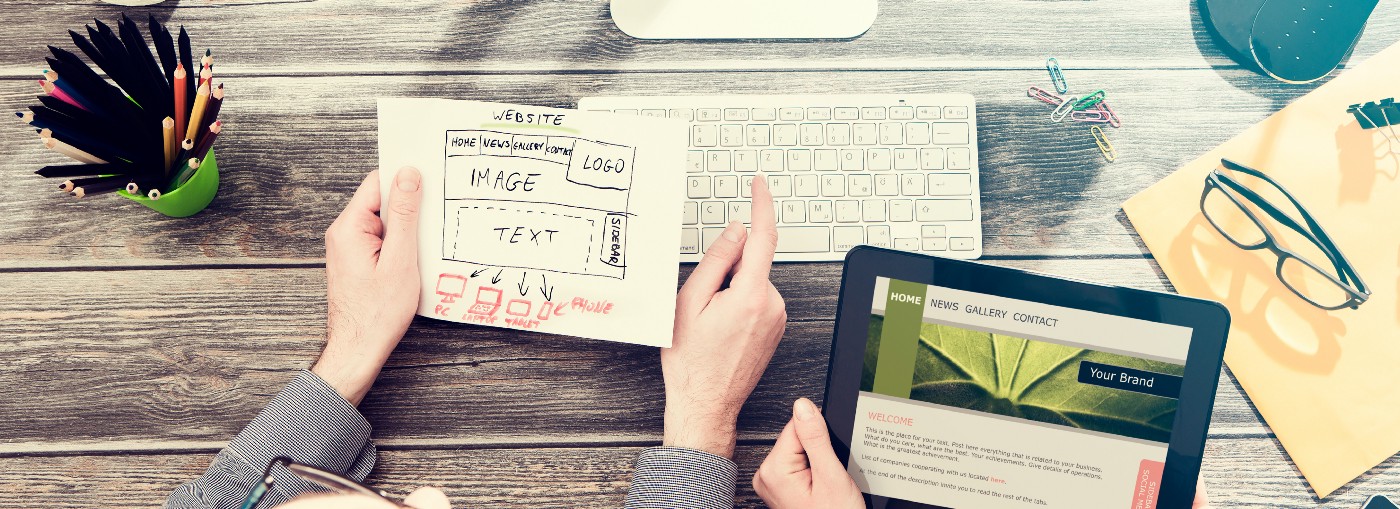 WEBSITE
HOME NEWS GALLERY CONTACT
LOGO
IMAGE
TEXT
SIDEBAR
PC LAPTOP TABLET PHONE
HOME NEWS GALLERY CONTACT
Your Brand
WELCOME
This is the place for your text. Post here everything that is related to your business.
What do you care, what are the best. Your achievements. Give details of operations.
What is the greatest achievement.
List of companies cooperating with us located here.
at the end of the description invite you to read the rest of the tabs.